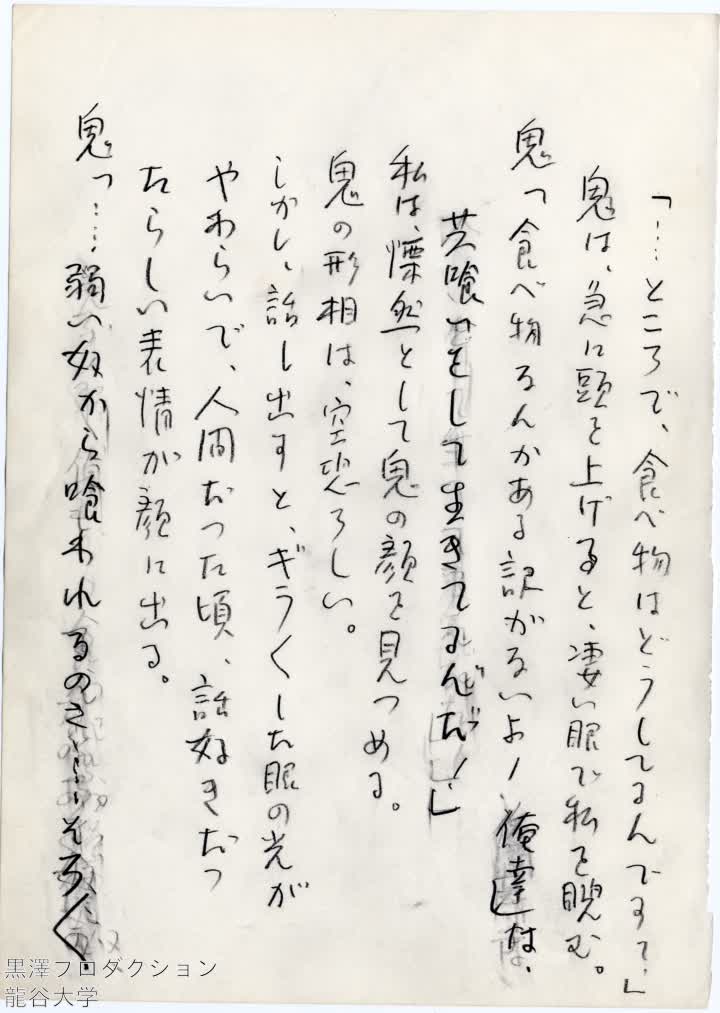 「…ところで、食べ物はどうしてるんです？」
鬼は、急に頭を上げると、凄い眼で私を睨む。
鬼「食べ物なんかある訳がないよ！俺達は、
共喰いをして生きてるんだ！」
私は、慄然として鬼の顔を見つめる。
鬼の形相は、空恐ろしい。
しかし、話し出すと、ギラ〱した眼の光が
やわらいで、人間だった頃、話好きだっ
たらしい表情が顔に出る。
鬼「……弱い奴から喰われるのさ……そろ〱
黒澤プロダクション
龍谷大学